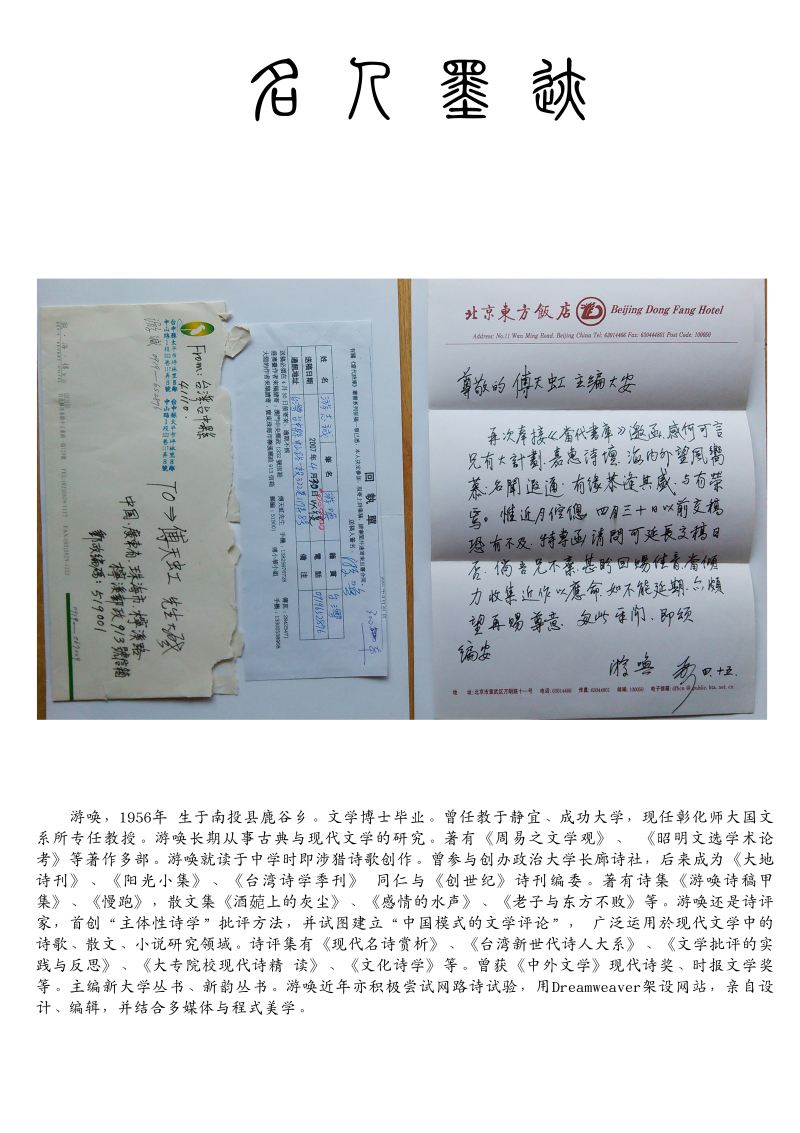 名人墨迹
From: 台灣台中縣
41110.
TO⇒傅天虹 先生 大啟
中國·廣東省·珠海市·檸溪路
檸溪郵政 913 號信箱
郵政編碼: 519001
回執單
姓名 游志誠 筆名 游喚 籍貫 台灣
送稿日期 2007年4月30日以後 電話
通訊地址 備注
北京東方飯店 Beijing Dong Fang Hotel
Address: No.11 Wan Ming Road. Beijing China Tel: 63014466 Fax: 63044801 Post Code: 100050
尊敬的傅天虹主編大安
再次奉接《當代書库》邀函,感何可言
兄有大計劃,嘉惠詩壇,海内外望風嚮
慕,名聞遐邇,有缘恭逢其盛,与有荣
焉。惟近月倥傯,四月三十日以前交稿
恐有不及,特專函請問可延長交稿日
否,倘吾兄不棄,甚盼回賜佳音,當傾
力收集近作以應命,如不能延期,亦頗
望再賜尊意,匆此奉聞,即頌
編安
游喚 四.十五.
地 址:北京市宣武区万明路十一号 电话:63014466 传真:63044801 邮编:100050
游唤,1956年 生于南投县鹿谷乡。文学博士毕业。曾任教于静宜、成功大学,现任彰化师大国文
系所专任教授。游唤长期从事古典与现代文学的研究。著有《周易之文学观》、 《昭明文选学术论
考》等著作多部。游唤就读于中学时即涉猎诗歌创作。曾参与创办政治大学长廊诗社,后来成为《大地
诗刊》、《阳光小集》、《台湾诗学季刊》 同仁与《创世纪》诗刊编委。著有诗集《游唤诗稿甲
集》、《慢跑》,散文集《酒菀上的灰尘》、《感情的水声》、《老子与东方不败》等。游唤还是诗评
家,首创“主体性诗学”批评方法,并试图建立“中国模式的文学评论”, 广泛运用於现代文学中的
诗歌、散文、小说研究领域。诗评集有《现代名诗赏析》、《台湾新世代诗人大系》、《文学批评的实
践与反思》、《大专院校现代诗精 读》、《文化诗学》等。曾获《中外文学》现代诗奖、时报文学奖
等。主编新大学丛书、新韵丛书。游唤近年亦积极尝试网路诗试验,用Dreamweaver架设网站,亲自设
计、编辑,并结合多媒体与程式美学。